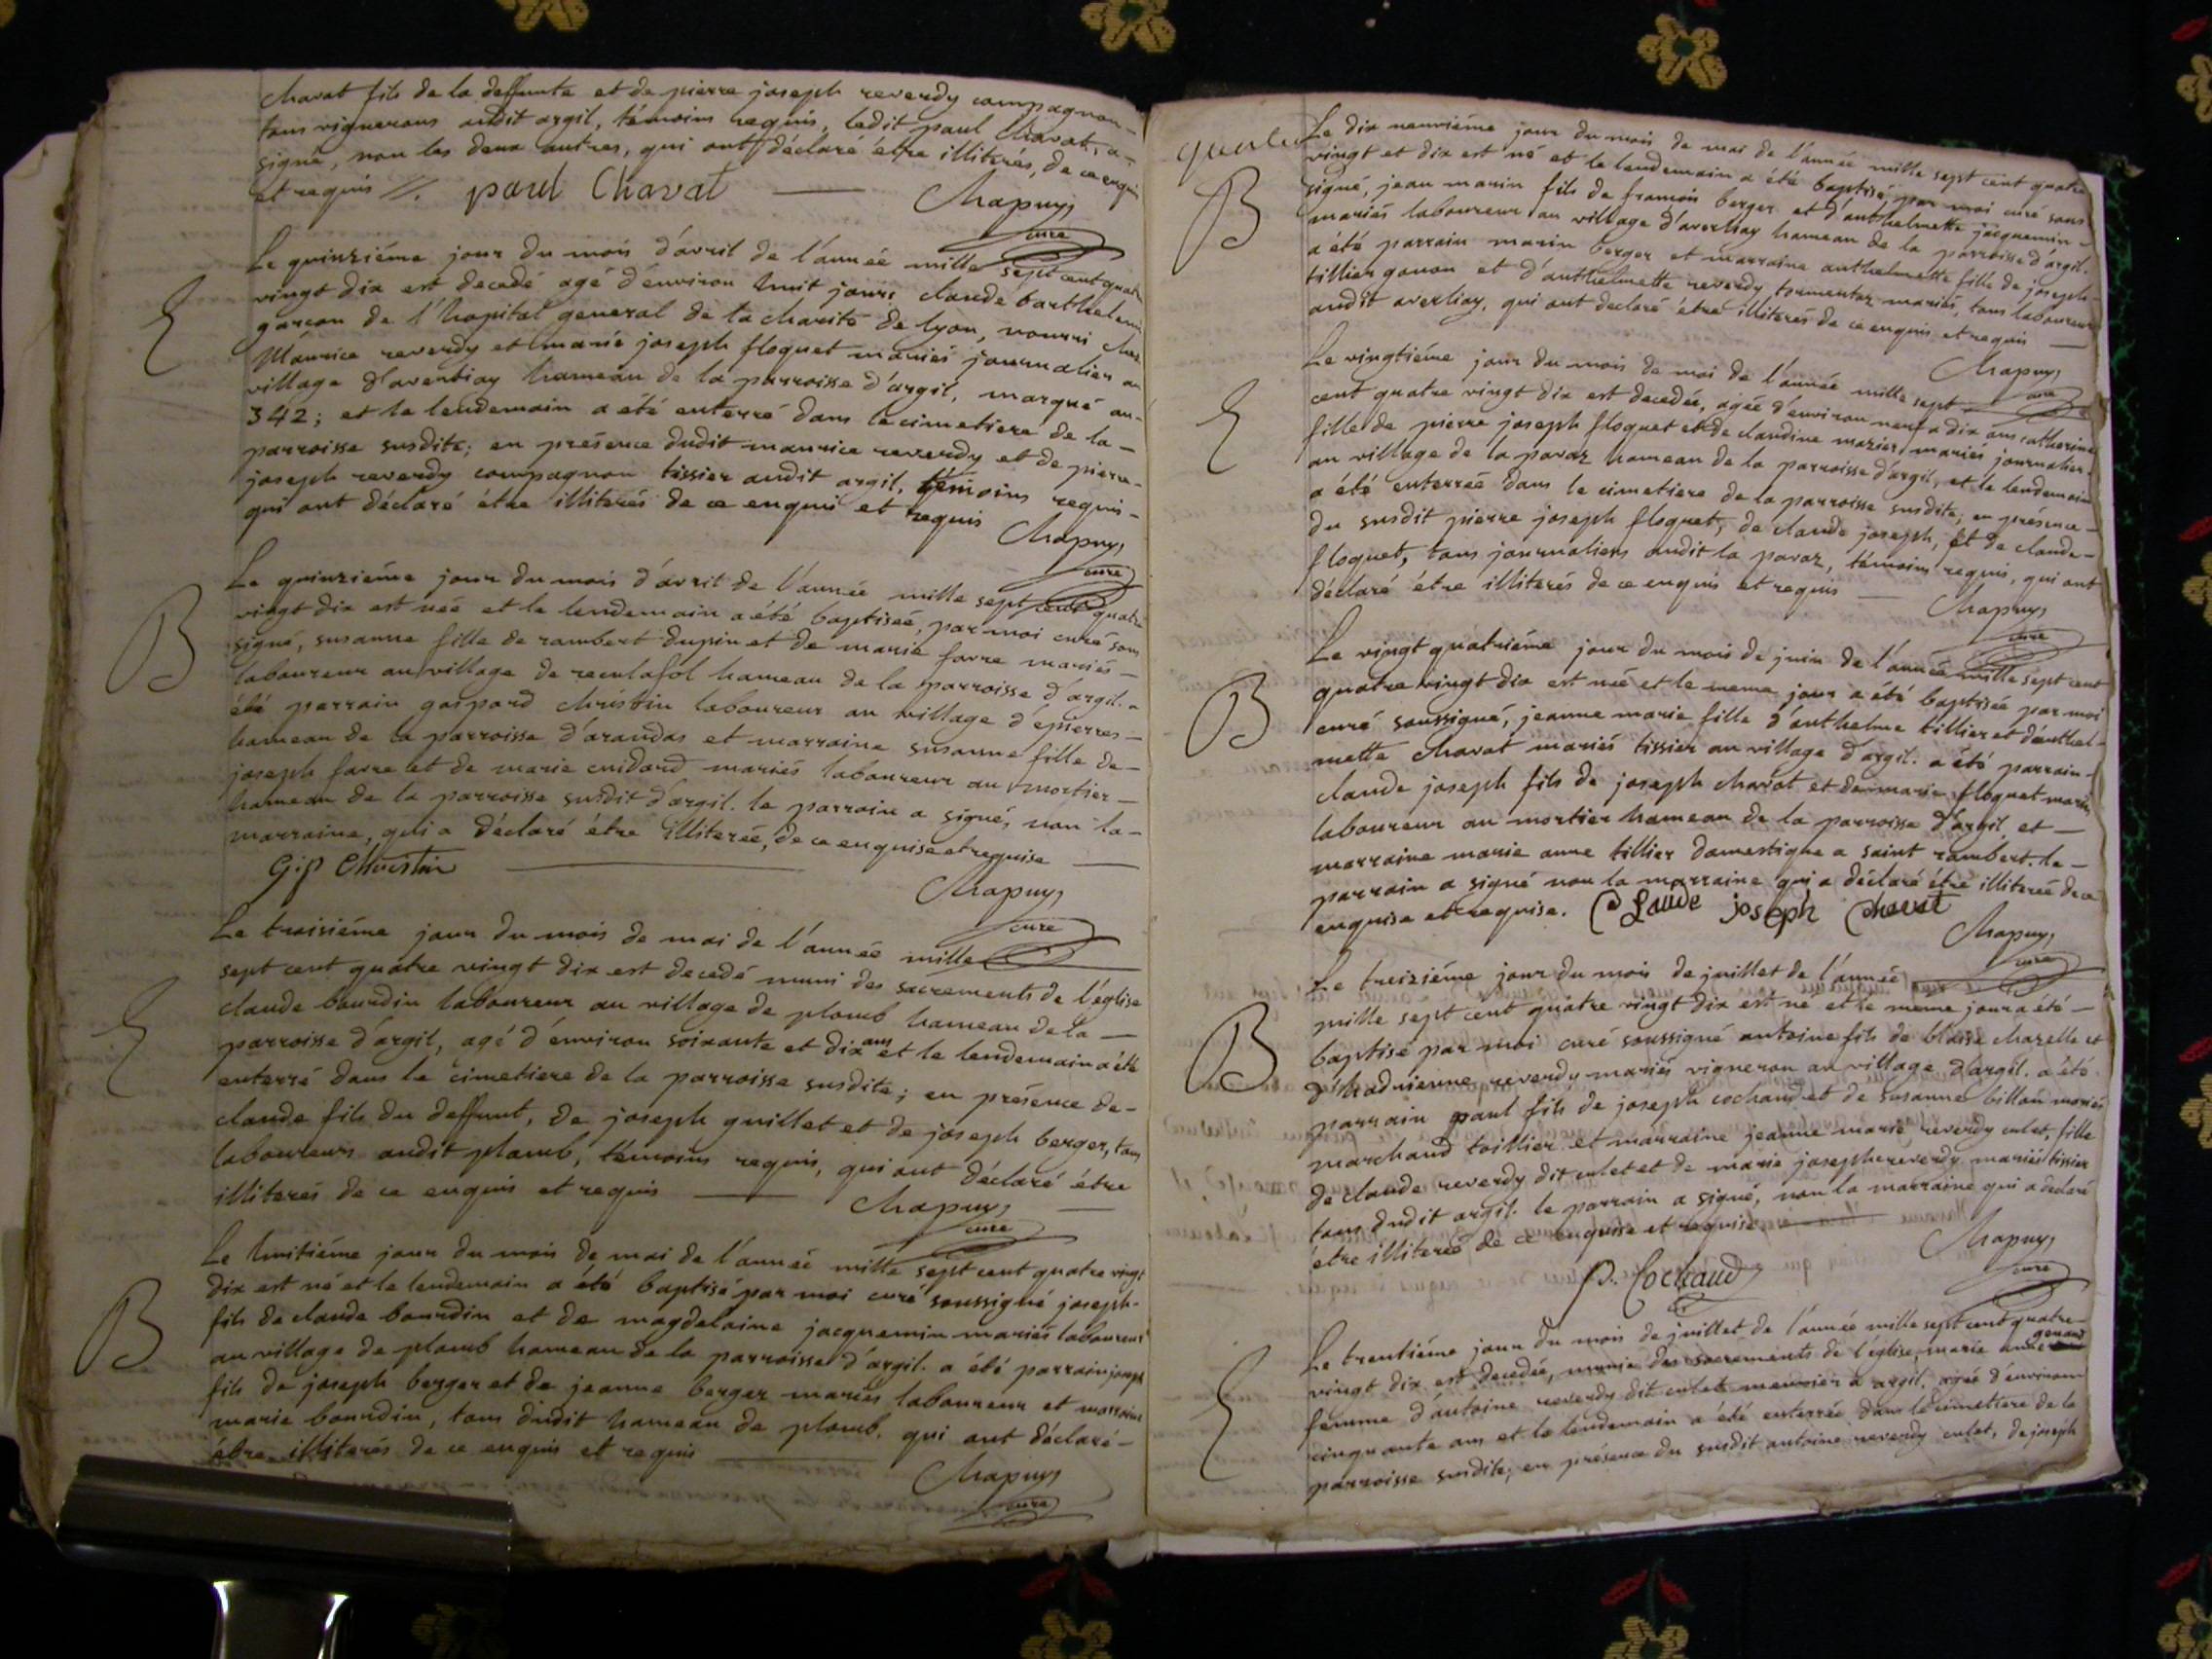 chavat fils de la deffunte et de pierre joseph reverdy compagnon -
tous vignerons audit argil, témoins requis, ledit paul chavat, a -
signé, non les deux autres, qui ont déclaré être illiteres, de ce enquis
et requis //. paul Chavat
Chapuy,
curé
Le quinziéme jour du mois d'avril de l'année mille sept cent quatre
vingt dix est decedé agé d'environ huit jours claude barthelemi
garcon de l'hopital general de la charité de lyon, nourri chez
Maurice reverdy et marie joseph floquet mariés journalier au
village d'averliay hameau de la parroisse d'argil, marqué au -
342; et le lendemain a été enterré dans le cimetiere de la -
parroisse susdite; en présence dudit maurice reverdy et de pierre -
joseph reverdy compagnon tissier audit argil, témoins requis -
qui ont déclaré être illiterés de ce enquis et requis
Chapuy,
curé
Le quinziéme jour du mois d'avril de l'année mille sept cent quatre
vingt dix est née et le lendemain a été baptisée, par moi curé sous
signé, susanne fille de rambert dupin et de marie favre mariés -
laboureur au village de reculafol hameau de la parroisse d'argil. a
été parrain gaspard christin laboureur au village d'épierres -
hameau de la parroisse d'arandas et marraine susanne fille de -
joseph favre et de marie cuidard mariés laboureur au mortier -
hameau de la parroisse susdit d'argil. le parrain a signé, non la -
marraine, qui a déclaré être illiterée, de ce enquise et requise
G.p Christin
Chapuy,
curé
Le troisiéme jour du mois de mai de l'année mille
sept cent quatre vingt dix est decedé muni des sacrements de l'église
claude bourdin laboureur au village de plomb hameau de la -
parroisse d'argil, agé d'environ soixante et dix ans et le lendemain a été
enterré dans le cimetiere de la parroisse susdite; en présence de -
claude fils du deffunt, de joseph guillet et de joseph berger, tous
laboureurs audit plomb, témoins requis, qui ont déclaré être
illiterés de ce enquis et requis
Chapuy,
curé
Le huitiéme jour du mois de mai de l'année mille sept cent quatre vingt
dix est né et le lendemain a été baptisé par moi curé soussigné joseph -
fils de claude bourdin et de magdelaine jacquemin mariés laboureur
au village de plomb hameau de la parroisse d'argil. a été parrain joseph
fils de joseph berger et de jeanne berger mariés laboureur et marraine
marie bourdin, tous dudit hameau de plomb. qui ont déclaré -
être illiterés de ce enquis et requis
Chapuy,
curé
Le dix neuviéme jour du mois de mai de l'année mille sept cent quatre
vingt et dix est né et le lendemain a été baptisé, par moi curé sous
signé, jean marin fils de francois berger et d'anthelmette jacquemin -
mariés laboureur au village d'averliay hameau de la parroisse d'argil.
a été parrain marin berger et marraine anthelmette fille de joseph -
tillier gonon et d'anthelmette reverdy tormentaz mariés, tous laboureurs
audit averliay, qui ont declaré être illiterés de ce enquis et requis
Chapuy,
curé
Le vingtiéme jour du mois de mai de l'année mille sept
cent quatre vingt dix est decedée, agée d'environ neuf a dix ans catherine
fille de pierre joseph floquet et de claudine mazier mariés journalier
au village de la pavaz hameau de la parroisse d'argil, et le lendemain
a été enterrée dans le cimetiere de la parroisse susdite; en présence -
du susdit pierre joseph floquet, de claude joseph, et de claude -
floquet, tous journaliers audit la pavaz, témoins requis, qui ont
déclaré être illiterés de ce enquis et requis
Chapuy,
curé
Le vingt quatriéme jour du mois de juin de l'année mille sept cent
quatre vingt dix est née et le meme jour a été baptisée par moi
curé soussigné, jeanne marie fille d'anthelme tillier et d'anthel-
mette chavat mariés tissier au village d'argil. a été parrain -
claude joseph fils de joseph chavat et de marie floquet mariés
laboureur au mortier hameau de la parroisse d'argil, et -
marraine marie anne tillier domestique a saint rambert. le -
parrain a signé non la marraine qui a déclaré être illiterée de ce
enquise et requise. Claude joseph Chavat
Chapuy,
curé
Le treiziéme jour du mois de juillet de l'année
mille sept cent quatre vingt dix est né et le meme jour a été -
baptisé par moi curé soussigné antoine fils de blaise charelle et
d'hadrienne reverdy mariés vigneron au village d'argil. a été
parrain paul fils de joseph cochand et de susanne billon mariés
marchand toillier et marraine jeanne marie reverdy culet, fille
de claude reverdy dit culet et de marie josephe reverdy mariés tissier
tous dudit argil. le parrain a signé, non la marraine qui a declaré
être illiterée de ce enquise et requise
Chapuy,
P. Cochaud
curé
Le trentiéme jour du mois de juillet de l'année mille sept cent quatre -
vingt dix est decedée, munie des sacrements de l'église, marie
femme d'antoine reverdy dit culet meunier a argil, agée d'environ
cinquante ans et le lendemain a été enterrée dans le cimetiere de la
parroisse susdite, en présence du susdit antoine reverdy culet, de joseph